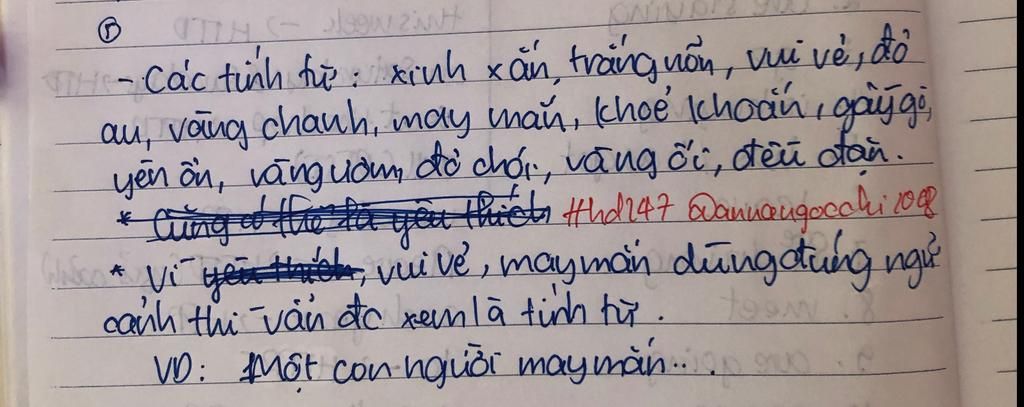 - Các tính từ : xinh xắn, trắng nõn, vui vẻ, đỏ
au, vàng chanh, may mắn, khoẻ khoắn, gầy gò,
yên ổn, vàng ươm, đỏ chói, vàng ối, đều đặn.
* Cũng có thể là yêu thích #hd247 @anvangocchi1098
* Vì yêu thích, vui vẻ, may mắn dùng đúng ngữ
cảnh thì vẫn đc xem là tính từ.
VD: Một con người may mắn...